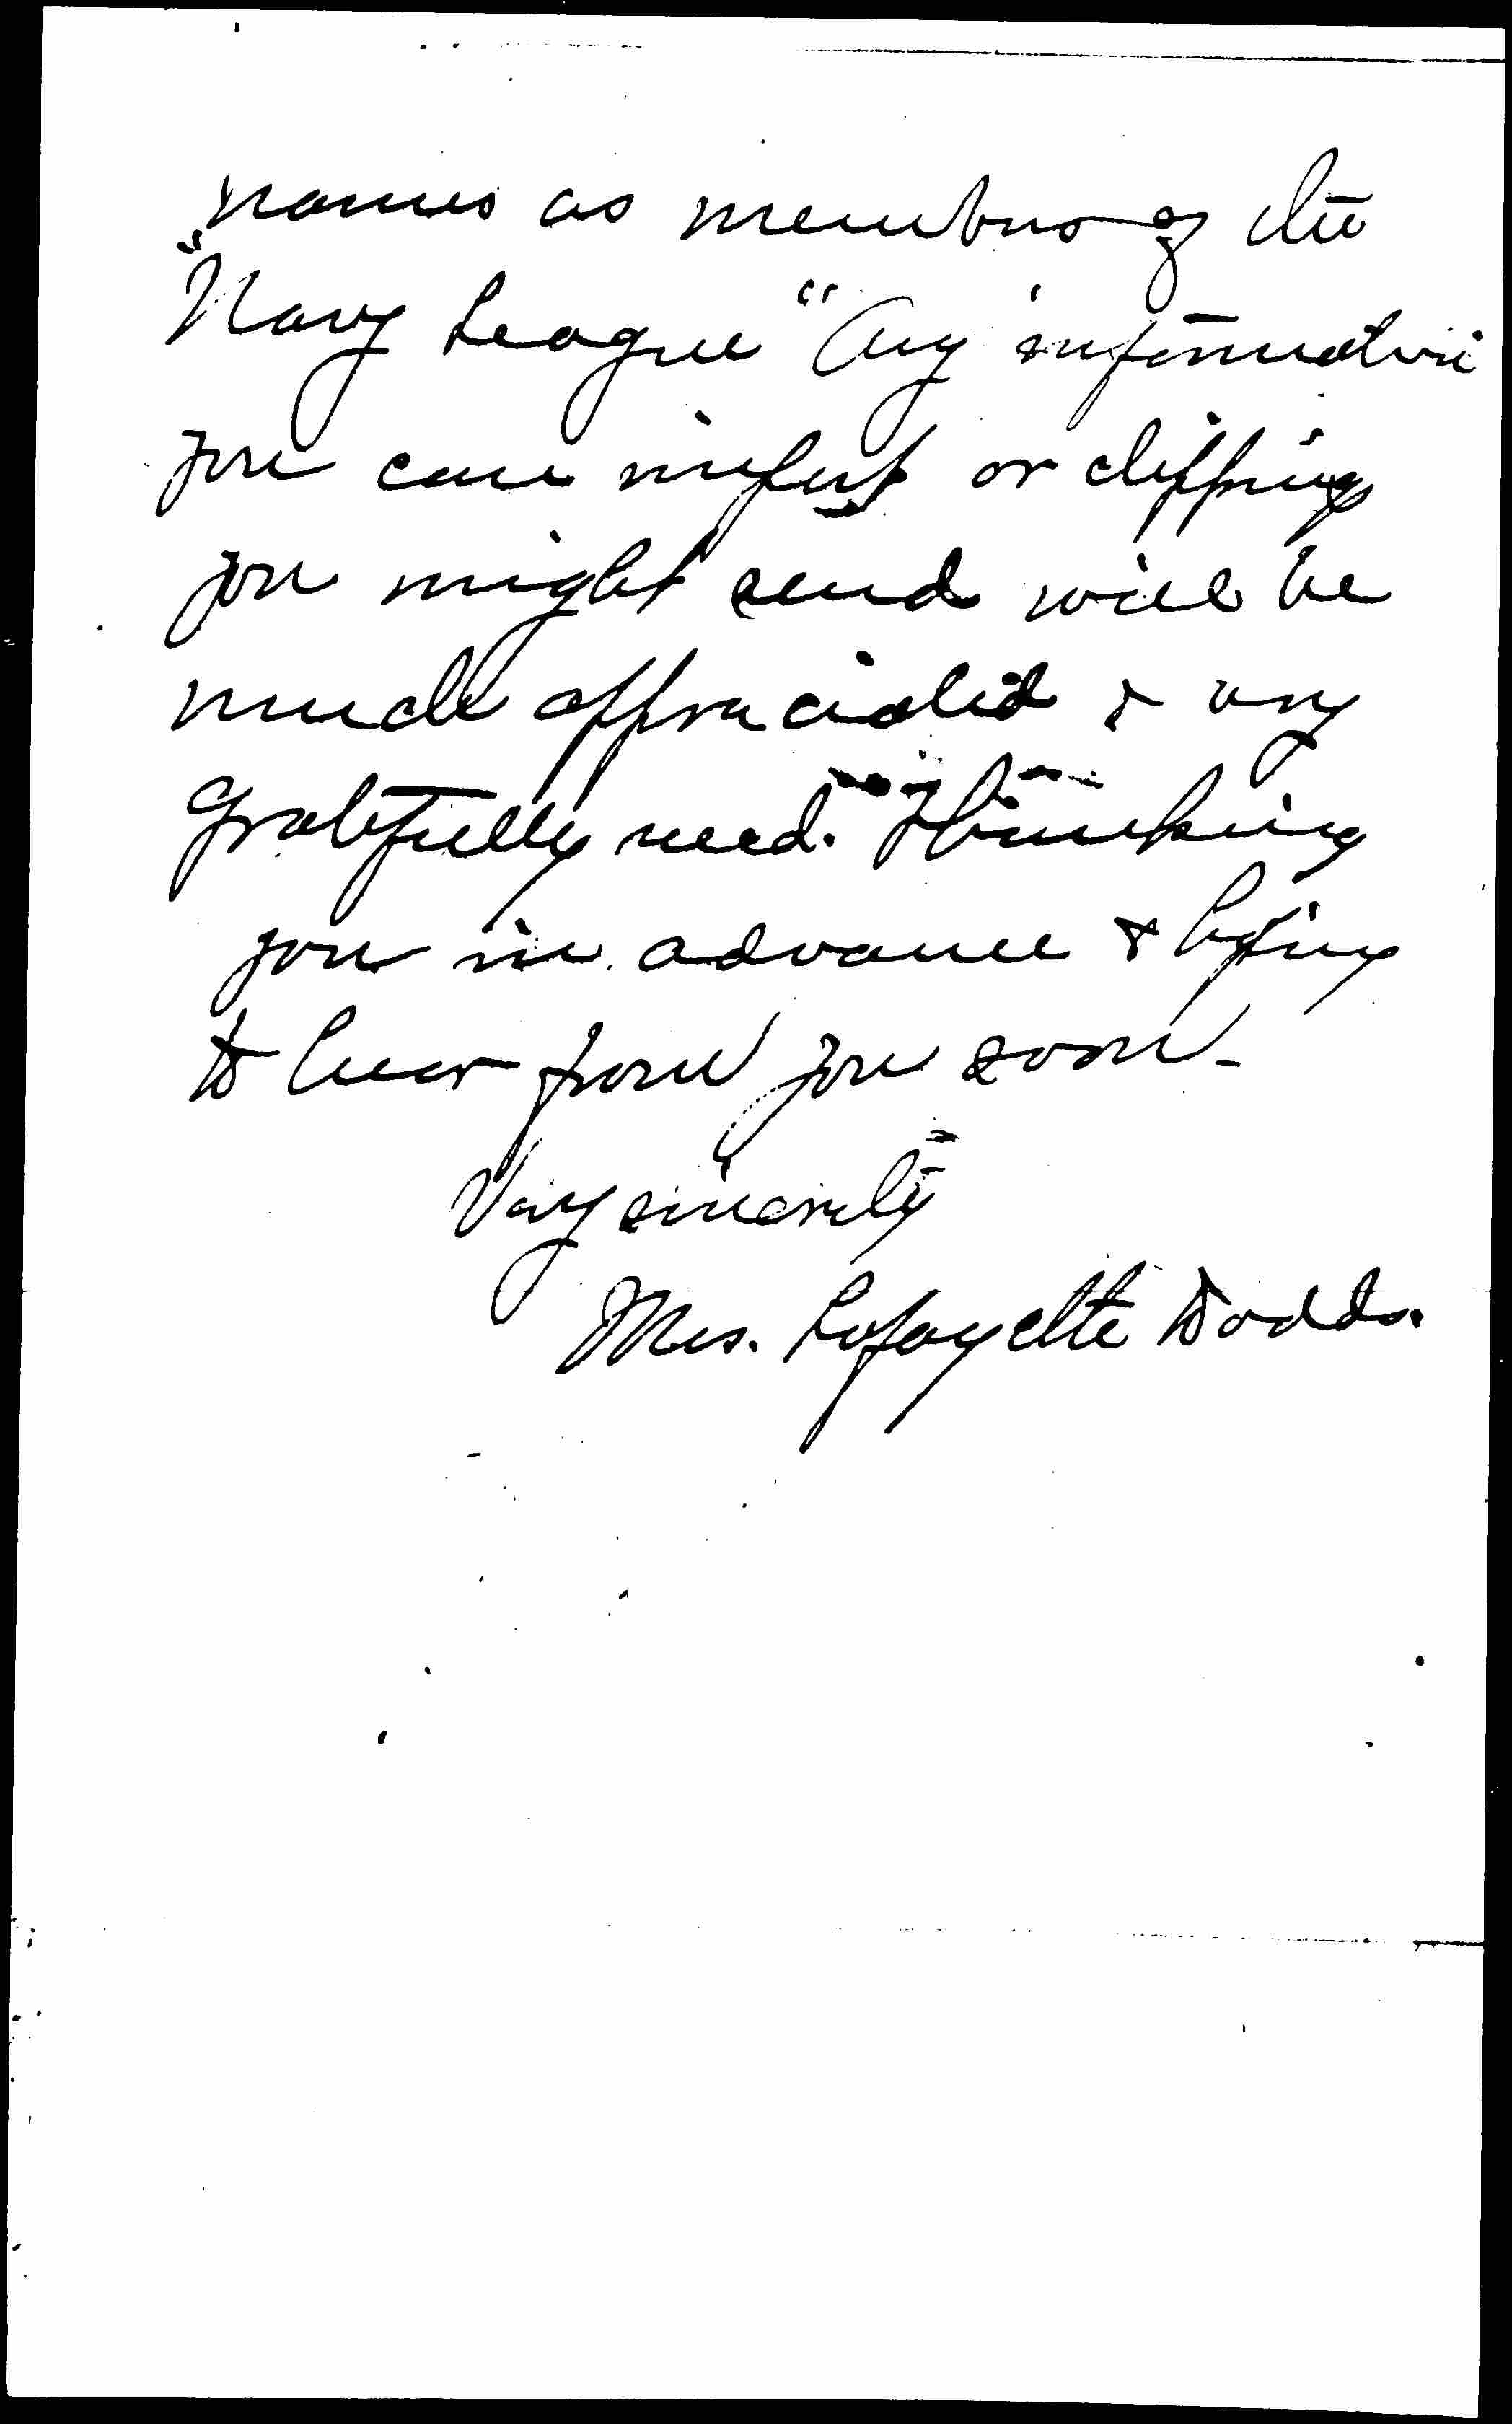 names as members of the
"Navy League" Any information
you can impart or clippings
you might send will be
much appreciated & very
gratefully recd. Thanking
you in advance & hoping
to hear from you soon-
Very sincerely
Mrs. Lafayette Dodds.